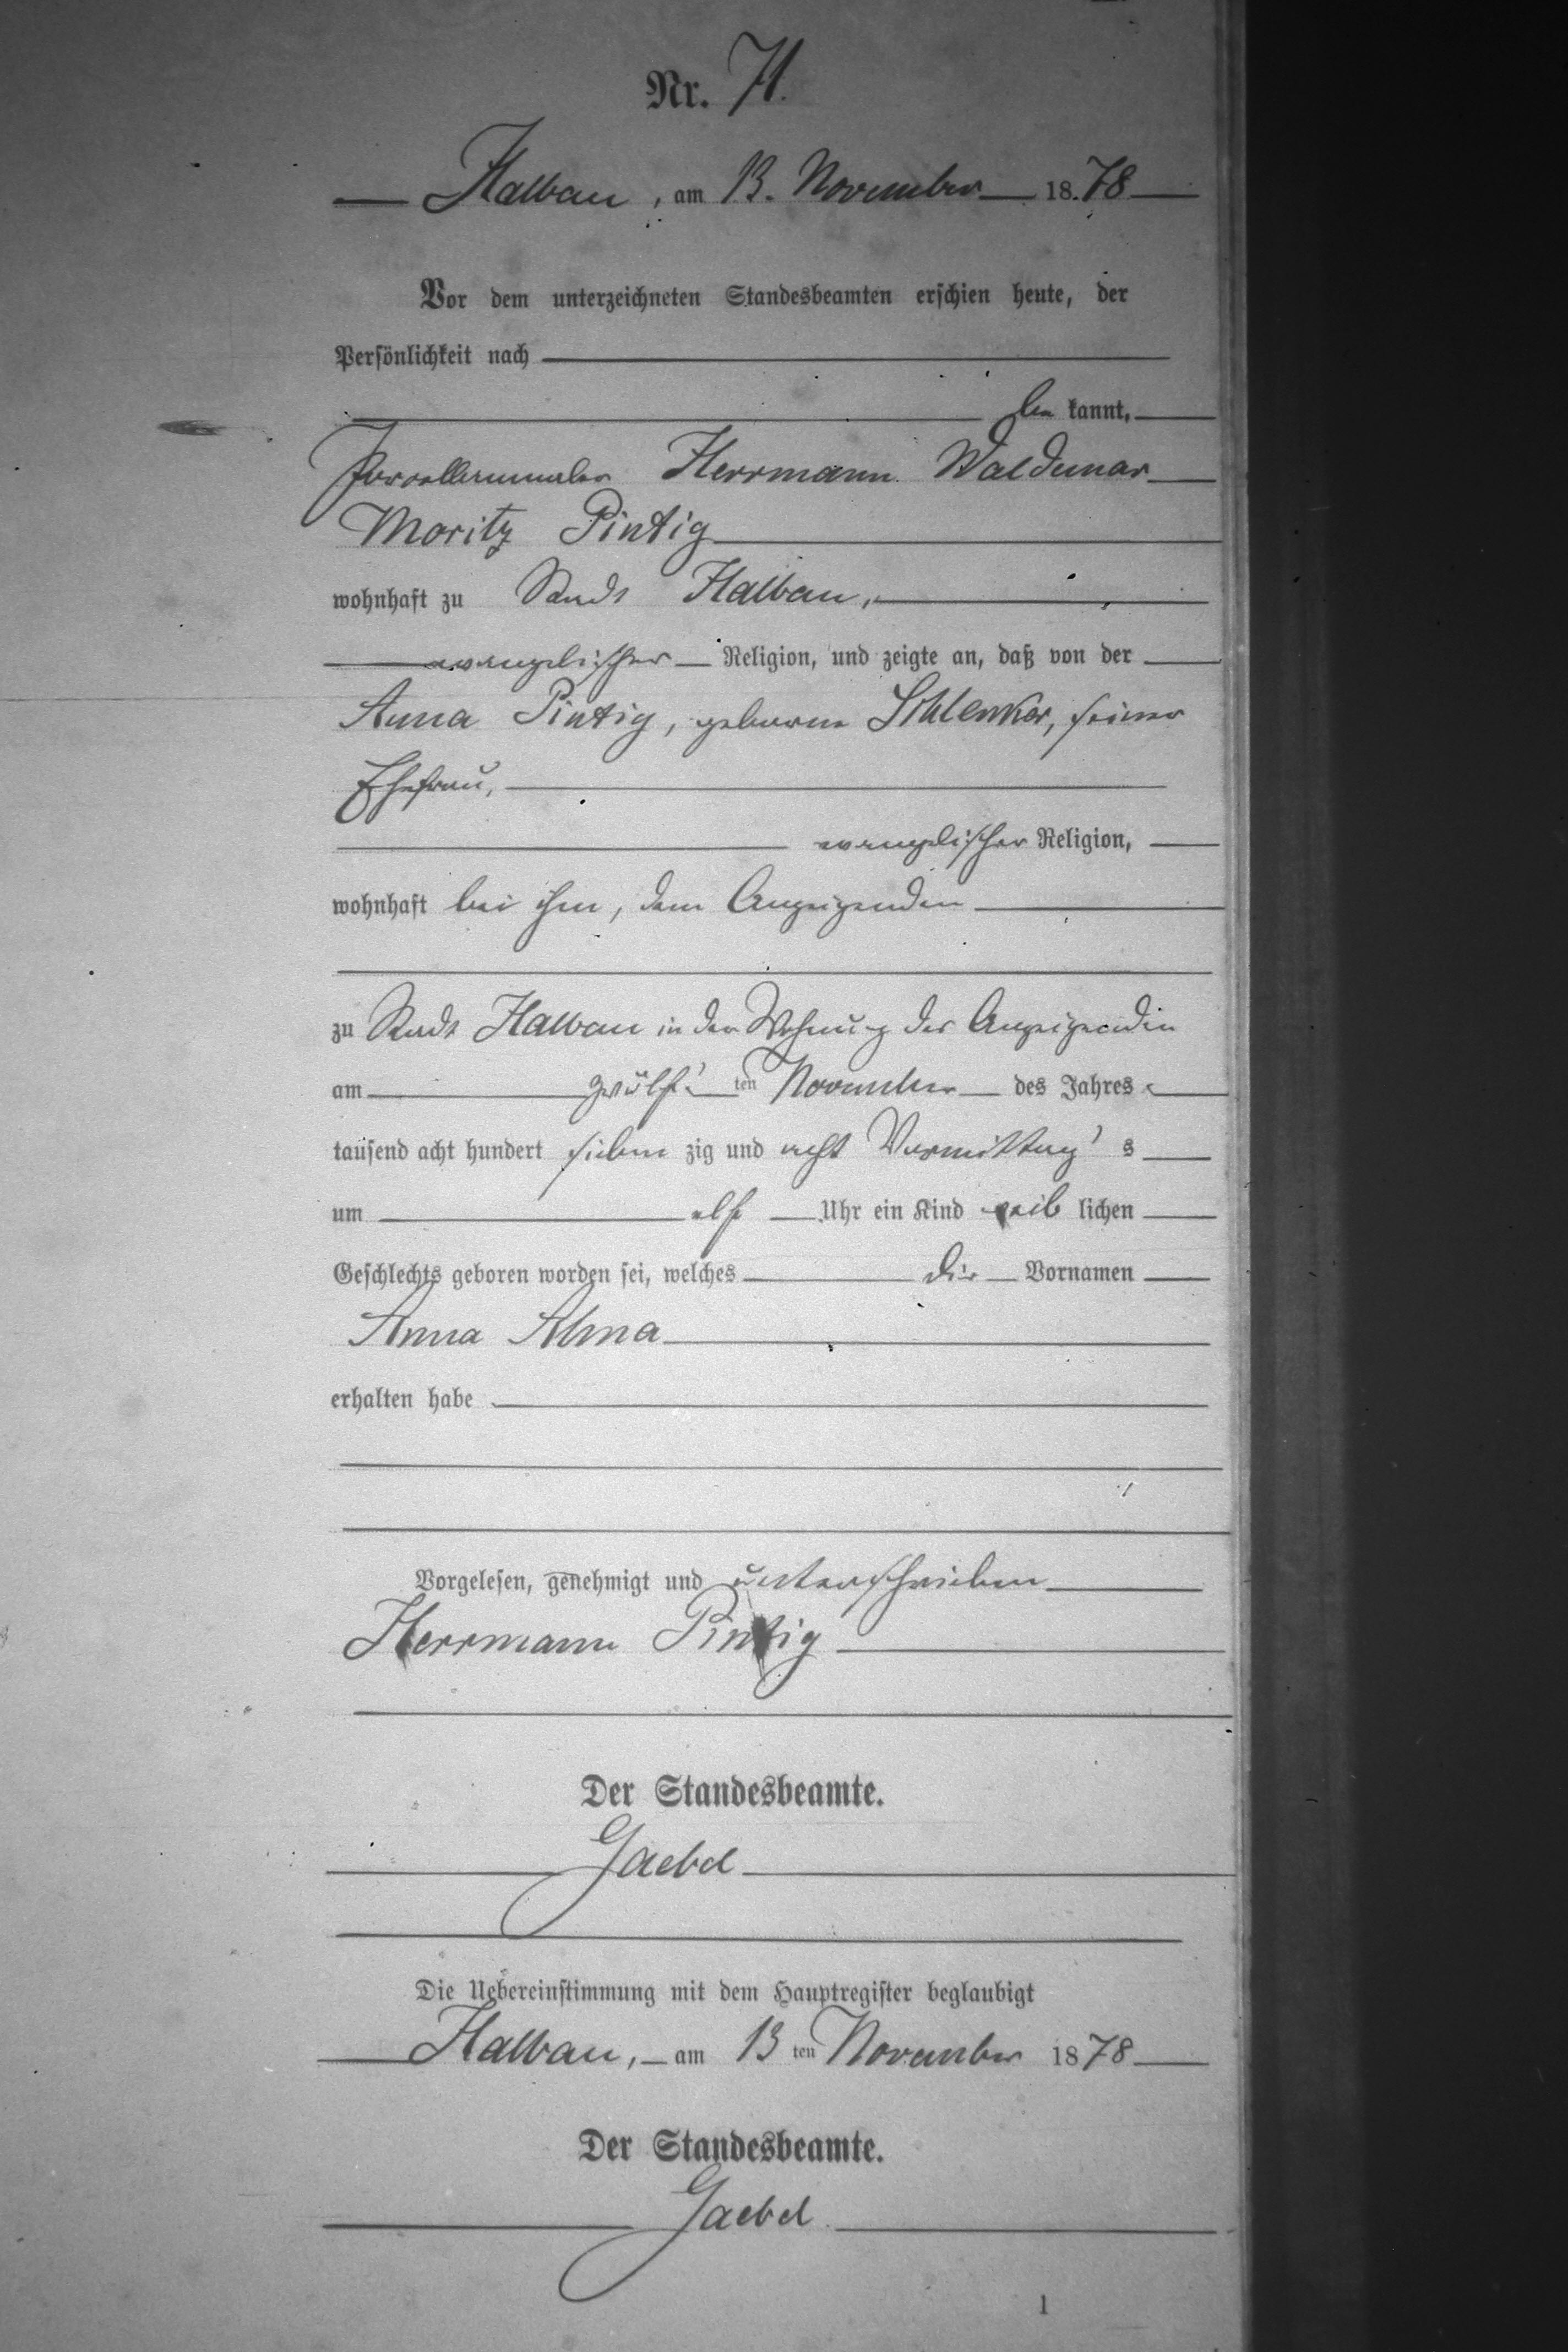 Nr. 71.
Halbau, am 13. November 18.78
Vor dem unterzeichneten Standesbeamten erschien heute, der
Persönlichkeit nach
be kannt,
Porzellanmaler Herrmann Waldemar
Moritz Pintig
wohnhaft zu Stadt Halbau,
evangelischer Religion, und zeigte an, daß von der
Anna Pintig, geborne Schlenker, seiner
Ehefrau,
evangelischer Religion,
wohnhaft bei ihm, dem Anzeigenden
zu Stadt Halbau in der Wohnung des Anzeigenden
am zwölf ten November des Jahres
tausend acht hundert sieben zig und acht Vormittag s
um elf Uhr ein Kind weib lichen
Geschlechts geboren worden sei, welches die Vornamen
Anna Alma
erhalten habe
Vorgelesen, genehmigt und unterschrieben
Herrmann Pintig
Der Standesbeamte.
Gaebel
Die Uebereinstimmung mit dem Hauptregister beglaubigt
Halbau, am 13 ten November 1878
Der Standesbeamte.
Gaebel
1